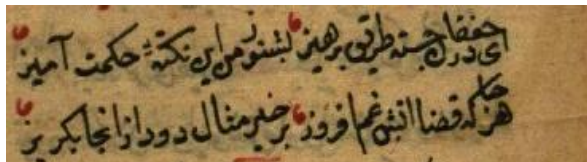 ای در خفقان جسته طریق پرهیز بشنو ز من این نکتهٔ حکمت آمیز
هر جا که قضا اتش غم افروزد برخیز مثال دود از انجا بکریز